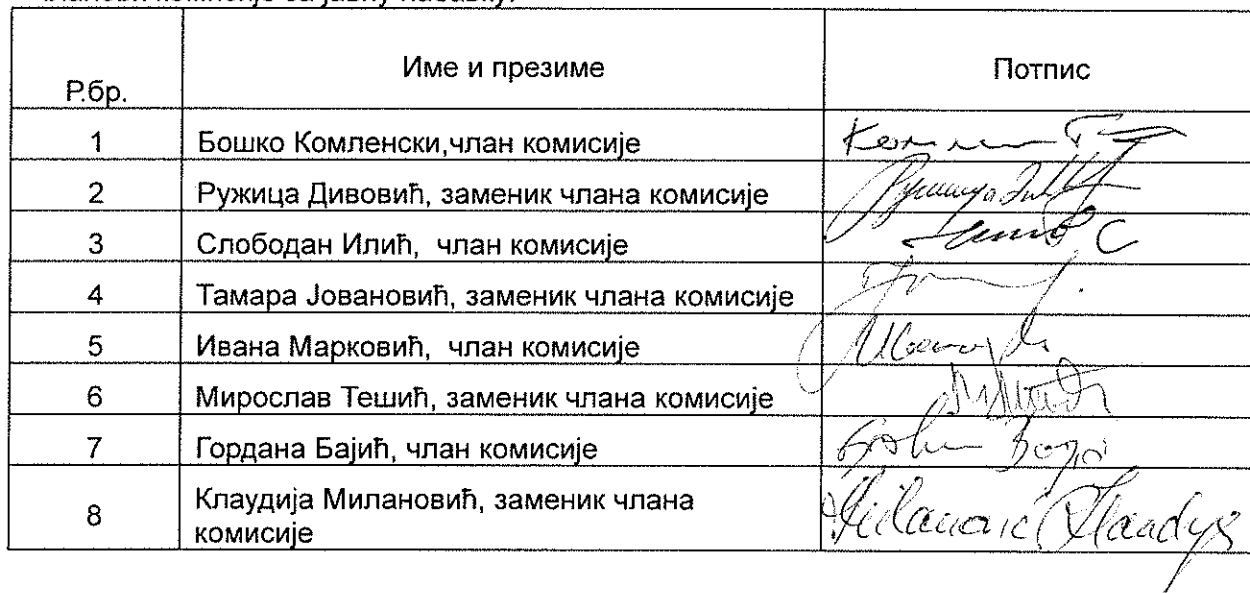 Р.бр. Име и презиме Потпис
1 Бошко Комленски,члан комисије
2 Ружица Дивовић, заменик члана комисије
3 Слободан Илић, члан комисије
4 Тамара Јовановић, заменик члана комисије
5 Ивана Марковић, члан комисије
6 Мирослав Тешић, заменик члана комисије
7 Гордана Бајић, члан комисије
8 Клаудија Милановић, заменик члана
комисије